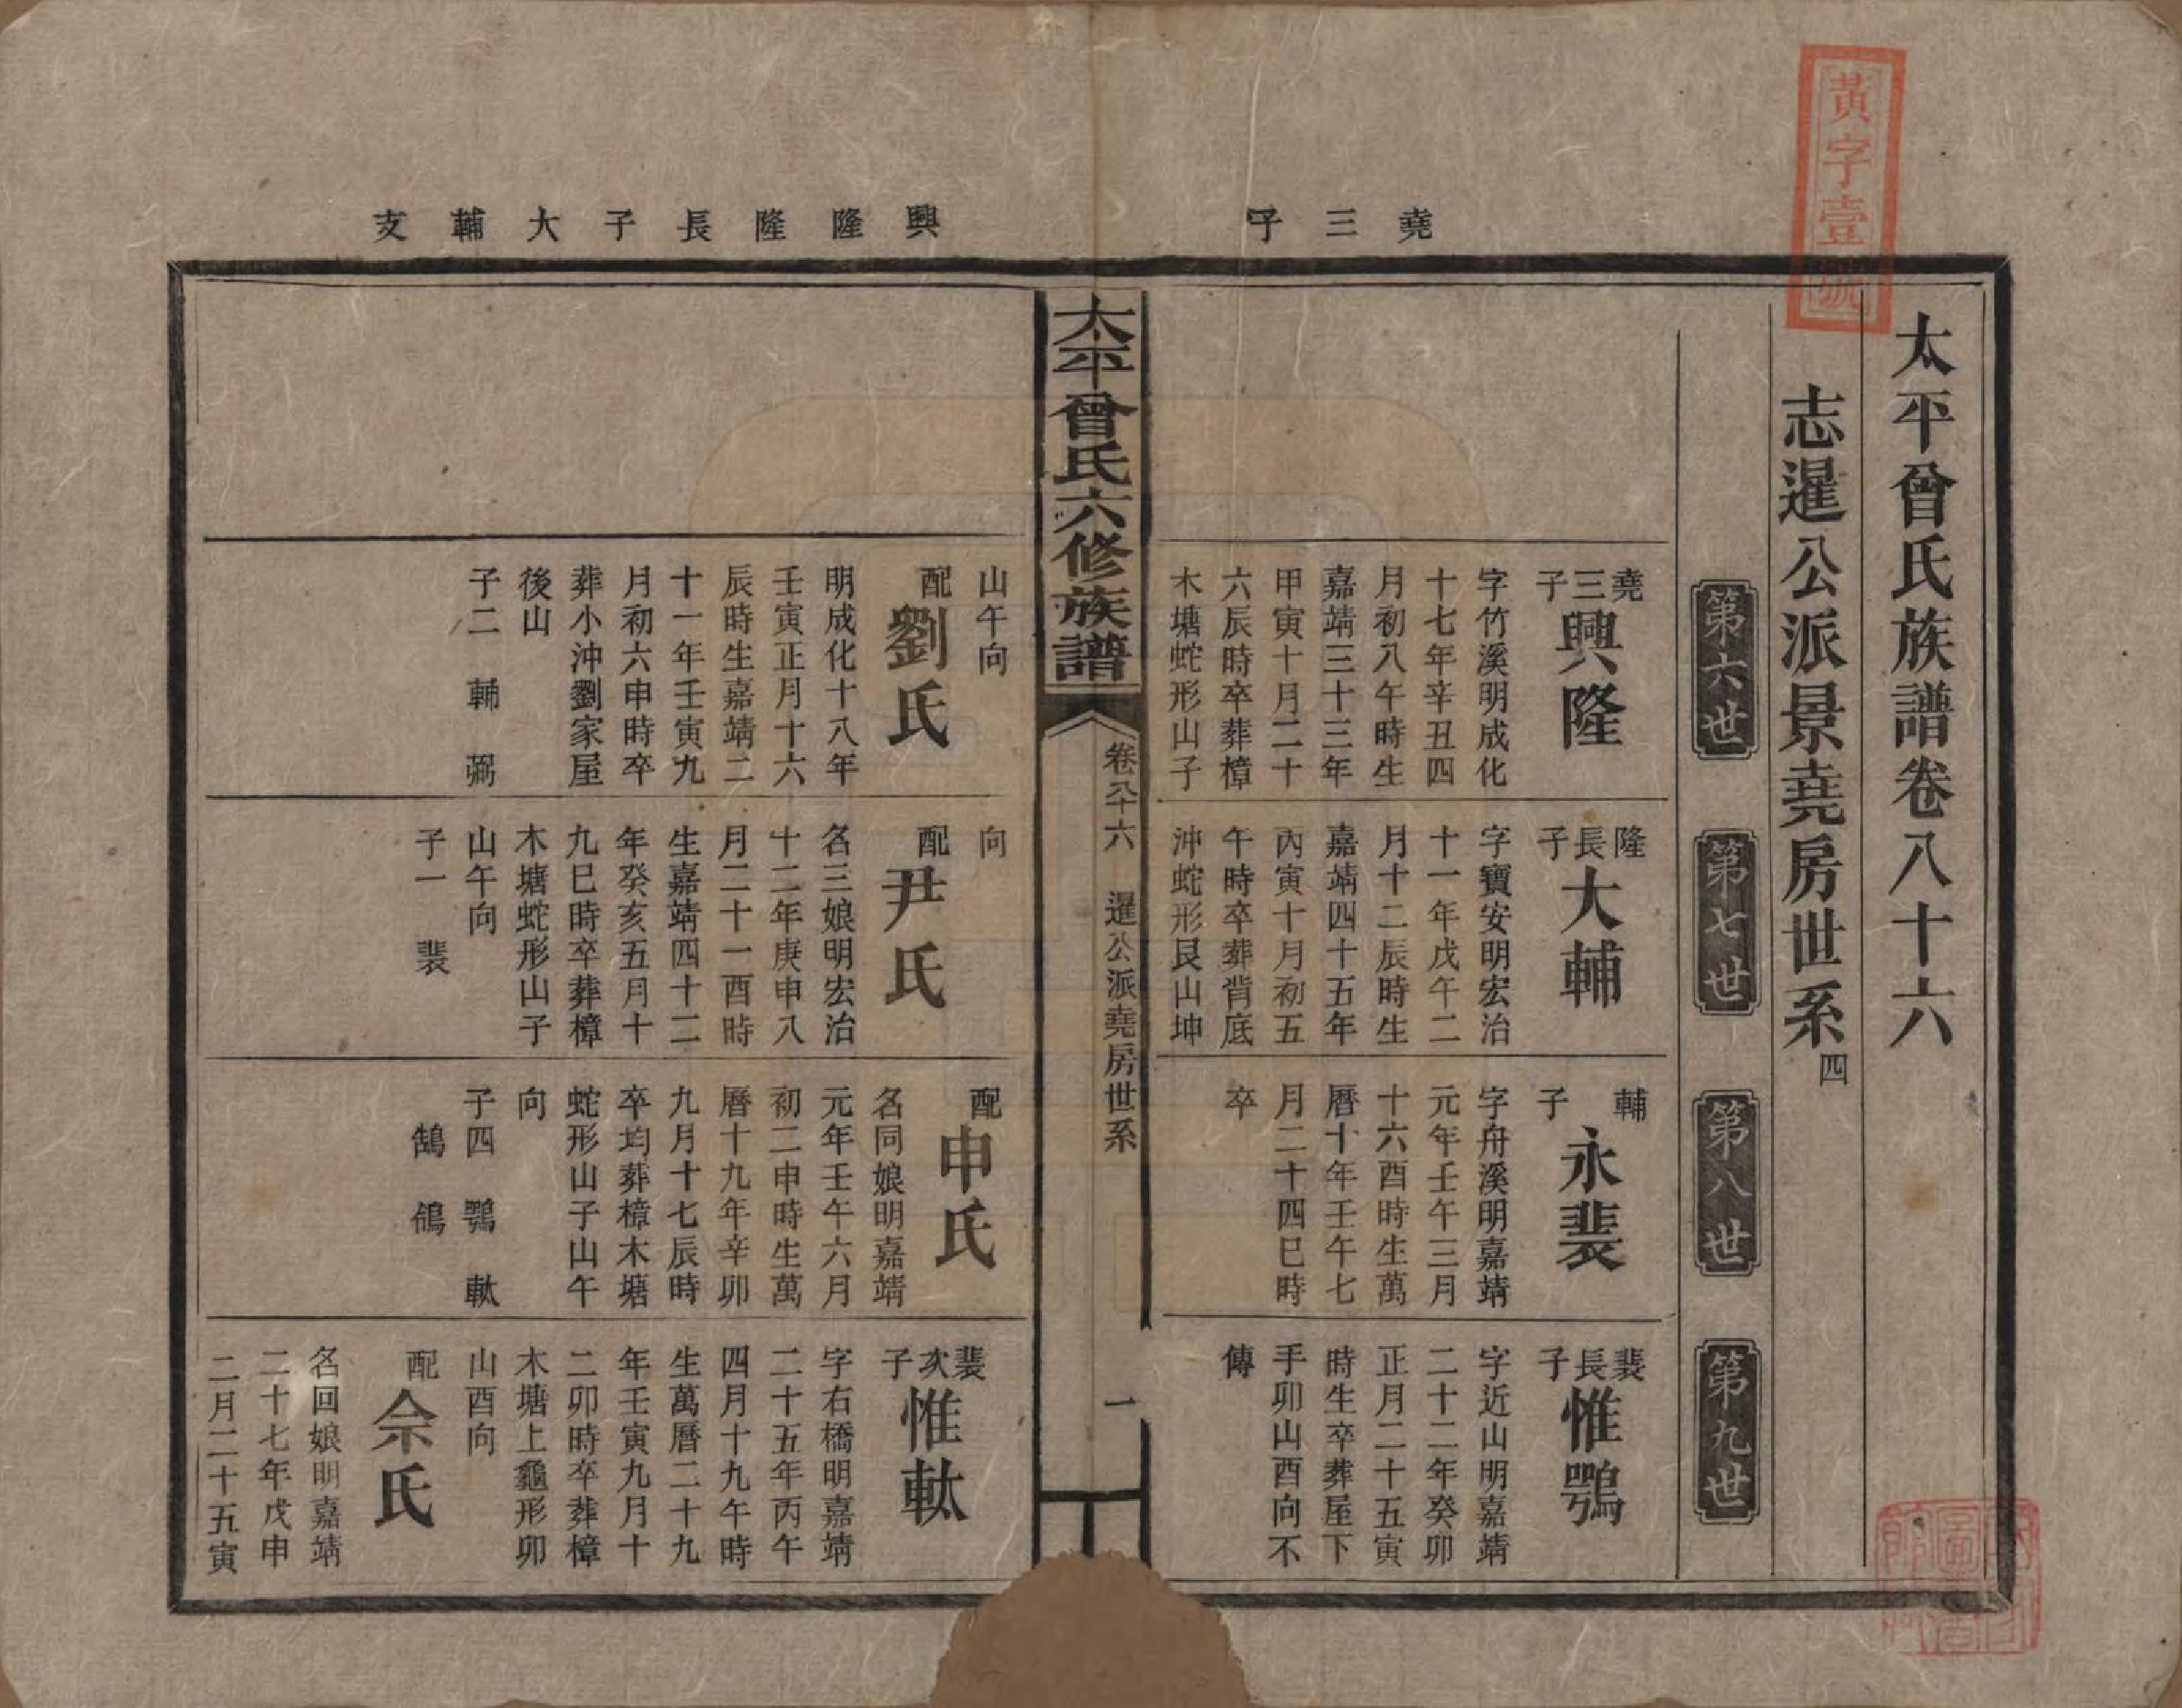 黃字壹號
太平曾氏族譜卷八十六
志暹公派景堯房世系四
第六世
第七世
第八世
第九世
堯三子
堯三子
興隆
字竹溪明成化
十七年辛丑四
月初八午時生
嘉靖三十三年
甲寅十月二十
六辰時卒葬樟
木塘蛇形山子
隆長子
大輔
字寶安明宏治
十一年戊午二
月十二辰時生
嘉靖四十五年
丙寅十月初五
午時卒葬背底
沖蛇形艮山坤
輔子
永裴
字舟溪明嘉靖
元年壬午三月
十六酉時生萬
曆十年壬午七
月二十四巳時
卒
裴長子
惟鶚
字近山明嘉靖
二十二年癸卯
正月二十五寅
時生卒葬屋下
手卯山酉向不
傳
太平曾氏六修族譜
卷八十六
暹公派堯房世系
一
興隆隆長子大輔支
山午向
配
劉氏
明成化十八年
壬寅正月十六
辰時生嘉靖二
十一年壬寅九
月初六申時卒
葬小沖劉家屋
後山
子二 輔 弼
向
配
尹氏
名三娘明宏治
十二年庚申八
月二十一酉時
生嘉靖四十二
年癸亥五月十
九巳時卒葬樟
木塘蛇形山子
山午向
子一 裴
配
申氏
名同娘明嘉靖
元年壬午六月
初二申時生萬
曆十九年辛卯
九月十七辰時
卒均葬樟木塘
蛇形山子山午
向
子四 鶚 軑
鵠 鴿
裴次子
惟軑
字右橋明嘉靖
二十五年丙午
四月十九午時
生萬曆二十九
年壬寅九月十
二卯時卒葬樟
木塘上龜形卯
山酉向
配
佘氏
名回娘明嘉靖
二十七年戊申
二月二十五寅